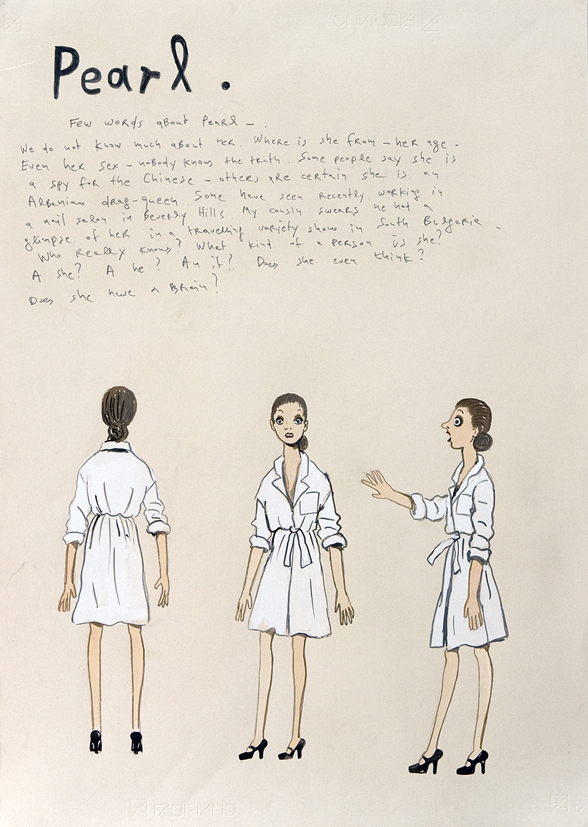 Pearl.
Few words about Pearl –
We do not know much about her. Where is she from – her age.
Even her sex – nobody knows the truth. Some people say she is
a spy for the Chinese – others are certain she is an
Albanian drag-queen Some have seen recently working in
a nail salon in Beverly Hills My cousin swears he hot a
glimpse of her in a travelling variety show in South Bulgaria.
Who really knows? What kind of a person is she?
A she? A he? An it? Does she even think?
Does she have a Brain?
FABRIANO
FABRIANO